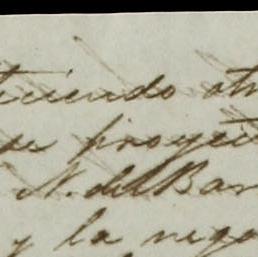 tuiendo otr
se proyect
N. del Bar
y la nego